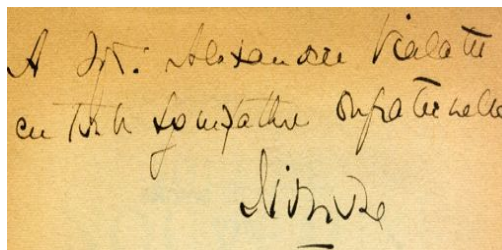 A Mr. Alexandre Vialatte
en toute sympathie confraternelle